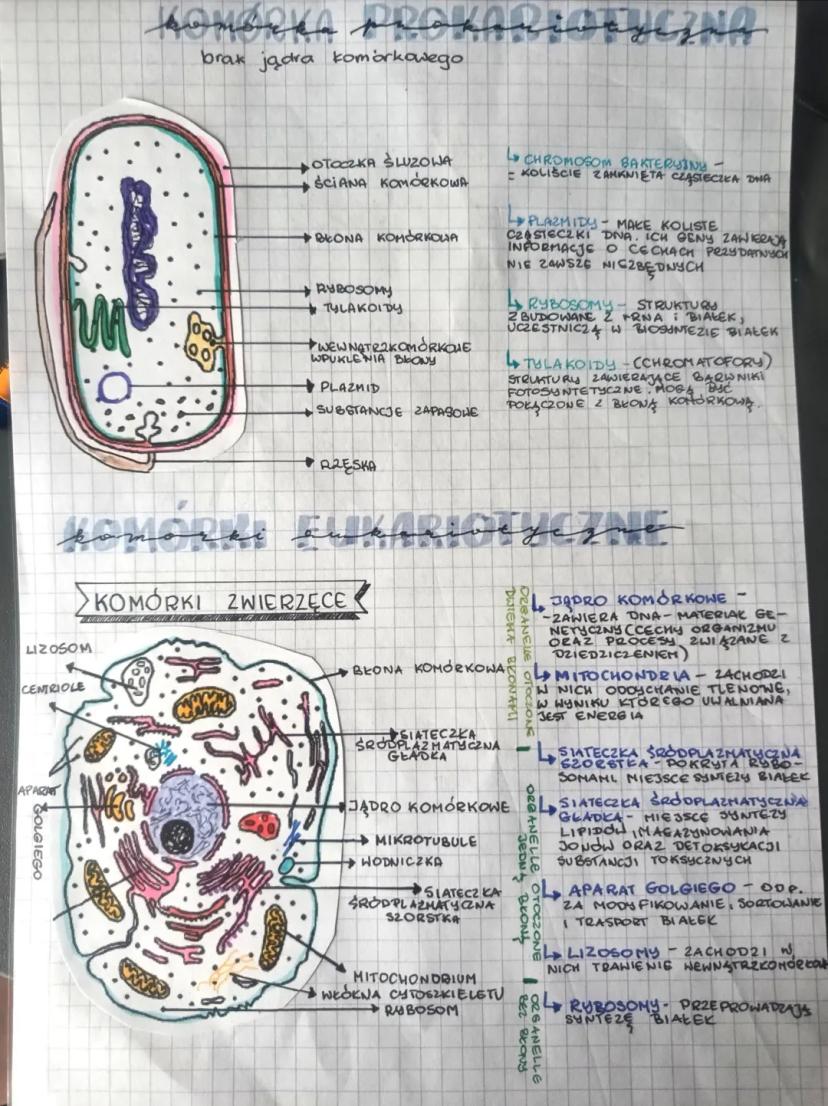 KOMÓRKA PROKARIOTYCZNA
komórka prokariotyczna
brak jądra komórkowego
OTOCZKA ŚLUZOWA
ŚCIANA KOMÓRKOWA
BŁONA KOMÓRKOWA
RYBOSOMY
TYLAKOIDY
WEWNĄTRZKOMÓRKOWE
WPUKLENIA BŁONY
PLAZMID
SUBSTANCJE ZAPASOWE
RZĘSKA
CHROMOSOM BAKTERYJNY -
= KOLIŚCIE ZAMKNIĘTA CZĄSTECZKA DNA
PLAZMIDY - MAŁE KOLISTE
CZĄSTECZKI DNA. ICH GENY ZAWIERAJĄ
INFORMACJE O CECHACH PRZYDATNYCH
NIE ZAWSZE NIEZBĘDNYCH
RYBOSOMY - STRUKTURY
ZBUDOWANE Z rRNA i BIAŁEK,
UCZESTNICZĄ W BIOSYNTEZIE BIAŁEK
TYLAKOIDY - (CHROMATOFORY)
STRUKTURY ZAWIERAJĄCE BARWNIKI
FOTOSYNTETYCZNE. MOGĄ BYĆ
POŁĄCZONE Z BŁONĄ KOMÓRKOWĄ.
KOMÓRKI EUKARIOTYCZNE
komórki eukariotyczne
KOMÓRKI ZWIERZĘCE
LIZOSOM
CENTRIOLE
APARAT
GOLGIEGO
BŁONA KOMÓRKOWA
SIATECZKA
ŚRÓDPLAZMATYCZNA
GŁADKA
JĄDRO KOMÓRKOWE
MIKROTUBULE
WODNICZKA
SIATECZKA
ŚRÓDPLAZMATYCZNA
SZORSTKA
MITOCHONDRIUM
WŁÓKNA CYTOSZKIELETU
RYBOSOM
ORGANELLE OTOCZONE
DWIEMA BŁONAMI
JĄDRO KOMÓRKOWE -
-ZAWIERA DNA - MATERIAŁ GE-
NETYCZNY (CECHY ORGANIZMU
ORAZ PROCESY ZWIĄZANE Z
DZIEDZICZENIEM)
MITOCHONDRIA - ZACHODZI
W NICH ODDYCHANIE TLENOWE,
W WYNIKU KTÓREGO UWALNIANA
JEST ENERGIA
ORGANELLE OTOCZONE
JEDNĄ BŁONĄ
SIATECZKA ŚRÓDPLAZMATYCZNA
SZORSTKA - POKRYTA RYBO-
SOMAMI. MIEJSCE SYNTEZY BIAŁEK
SIATECZKA ŚRÓDPLAZMATYCZNA
GŁADKA - MIEJSCE SYNTEZY
LIPIDÓW I MAGAZYNOWANIA
JONÓW ORAZ DETOKSYKACJI
SUBSTANCJI TOKSYCZNYCH
APARAT GOLGIEGO - ODP.
ZA MODYFIKOWANIE, SORTOWANIE
I TRASPORT BIAŁEK
LIZOSOMY - ZACHODZI W
NICH TRAWIENIE WEWNĄTRZKOMÓRKOW
ORGANELLE
BEZ BŁONY
RYBOSOMY - PRZEPROWADZAJĄ
SYNTEZĘ BIAŁEK